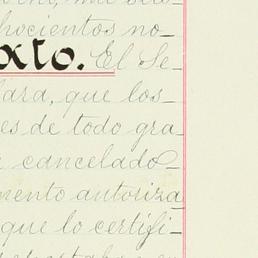 hocientos no_
xto. El Se_
ara, que los_
es de todo gra_
cancelado_
mento autoriza
que lo certifi_